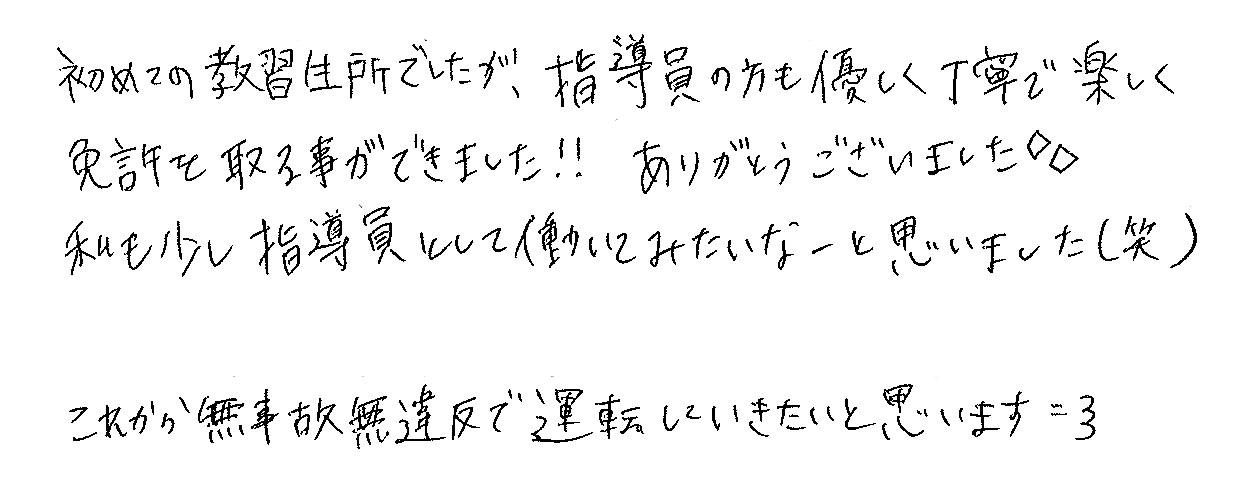 初めての教習生所でしたが、指導員の方も優しく丁寧で楽しく
免許を取る事ができました!! ありがとうございました◇◇
私も少し指導員として働いてみたいなーと思いました(笑)
これから無事故無違反で運転していきたいと思います=3